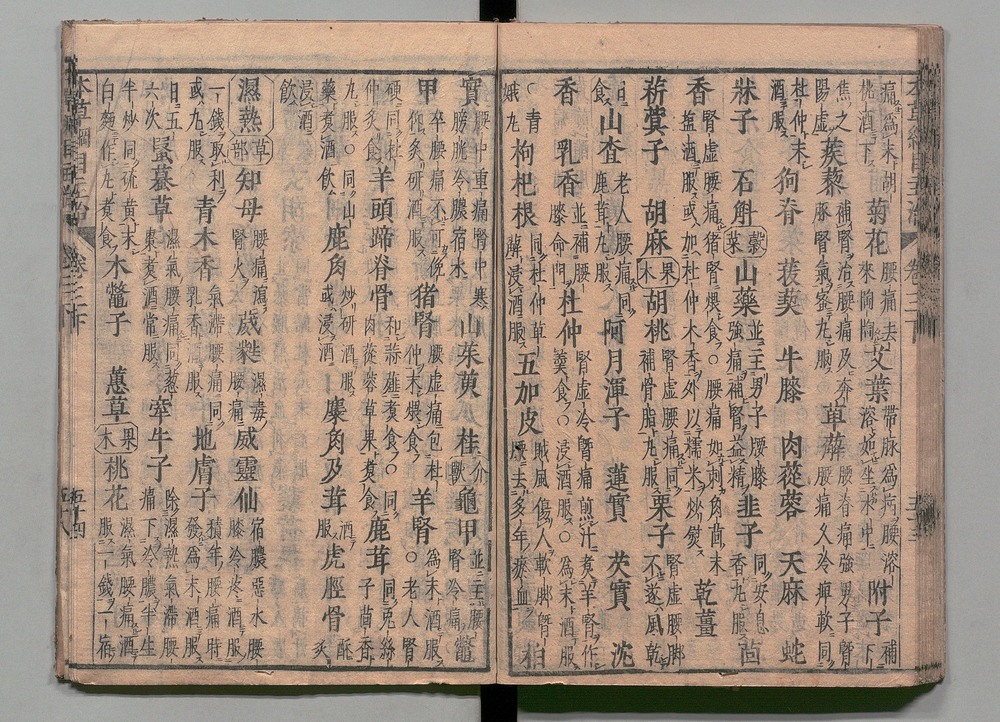 本草綱目主治 卷三下 五十三
痛爲末胡桃酒下 菊花 腰痛去來陶陶 艾葉 帶脉爲病腰溶溶如坐水中 附子 補下
焦之陽虛 蒺藜 補腎治腰痛及奔豚腎氣蜜丸服 萆薢 腰脊痛強男子腎腰痛久冷痺軟同
杜仲末酒服 狗脊 菝葜 牛膝 肉蓯蓉 天麻 蛇
牀子 石斛 穀菜 山藥 並主男子腰膝強痛補腎益精 韭子 同安息香丸服 茴
香 腎虛腰痛猪腎煨食○腰痛如刺角茴鹽酒服或加杜仲木香外以糯米炒熨 乾薑
菥蓂子 胡麻 果木 胡桃 腎虛腰痛同補骨脂丸服 栗子 腎虛腰脚不遂風乾
日食 山査 老人腰痛同鹿茸丸服 阿月渾子 蓮實 芡實 沈
香 乳香 並補腰膝命門 杜仲 腎虛冷臀痛煎汁煮羊腎作羹食○浸酒服○爲末酒服
○青娥丸 枸杞根 同杜仲萆薢浸酒服 五加皮 賊風傷人軟脚臀腰去多年瘀血 柏
實 腰中重痛腎中寒膀胱冷膿宿水 山茱萸 桂 介獸 龜甲 並主腰腎冷痛 鼈
甲 卒腰痛不可俛仰炙研酒服 猪腎 腰虛痛包杜仲末煨食 羊腎 爲末酒服○老人腎
硬同杜仲炙食 羊頭蹄脊骨 和蒜薤煮食○同肉蓯蓉草果煮食 鹿茸 同兔絲子茴香
丸服○同山藥煮酒飲 鹿角 炒研酒服或浸酒 麋角及茸 酒服 虎脛骨 酥炙
浸酒飲
濕熱 草部 知母 腰痛瀉腎火 葳蕤 濕毒腰痛 威靈仙 宿膿惡水腰膝冷疼酒服
一錢取利或丸服 青木香 氣滯腰痛同乳香酒服 地膚子 積年腰痛時發爲末酒服
日五六次 蝦蟇草 濕氣腰痛同葱棗煮酒常服 牽牛子 除濕熱氣滯腰痛下冷膿半生
半炒同硫黄末白麪作丸煮食 木鼈子 蕙草 果木 桃花 濕氣腰痛酒服一錢一宿
本草綱目主治 卷三下 五十四